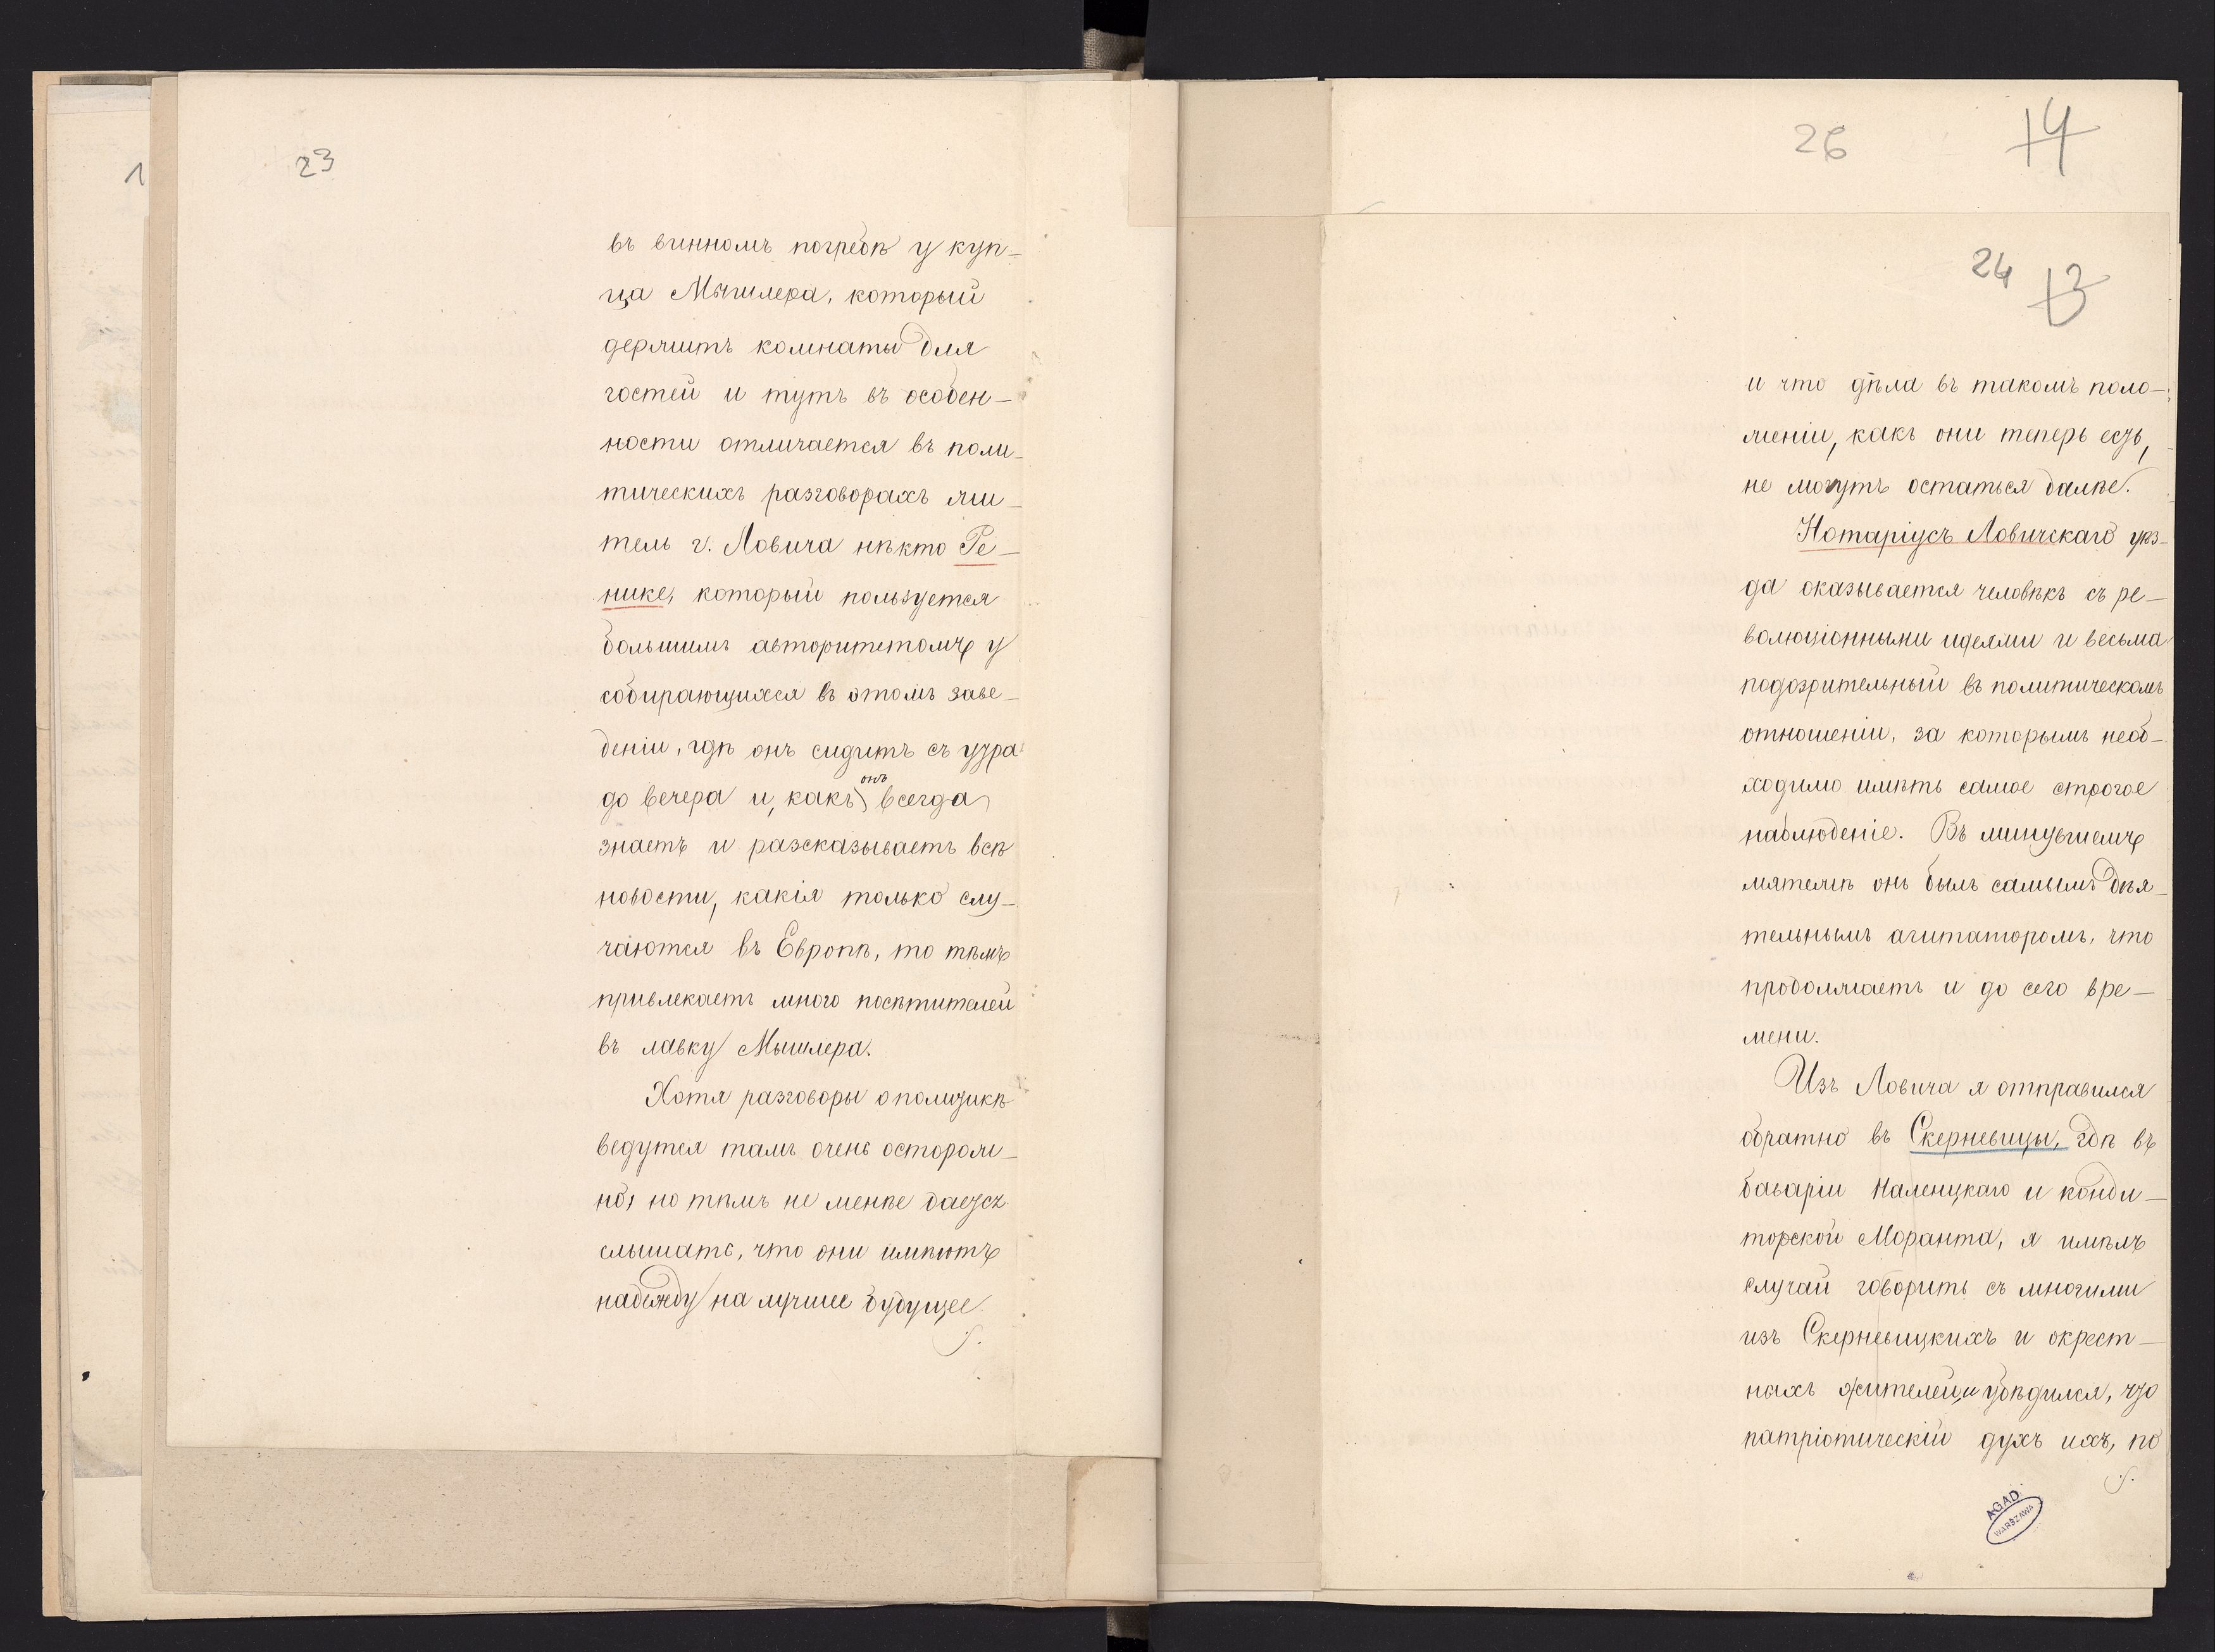 23
въ винномъ погребѣ у куп-
ца Мышлера, который
держитъ комнаты для
гостей и тутъ въ особен-
ности отличается въ поли-
тическихъ разговорахъ жи-
тель г. Ловича нѣкто Ре-
нике, который пользуется
большимъ авторитетомъ у
собирающихся въ этомъ заве-
деніи, гдѣ онъ сидитъ съ утра
до вечера и, какъ онъ всегда
знаетъ и разсказываетъ всѣ
новости, какія только слу-
чаются въ Европѣ, то тѣмъ
привлекаетъ много посѣтителей
въ лавку Мышлера.
Хотя разговоры о политикѣ
ведутся тамъ очень осторож-
но, но тѣмъ не менѣе дается
слышать, что они имѣютъ
надежду на лучшее будущее
26 14
24 13
и что дѣла въ такомъ поло-
женіи, какъ они теперь есть,
не могутъ остаться далѣе.
Нотаріусъ Ловичскаго уѣз-
да оказывается человѣкъ съ ре-
волюціонными идеями и весьма
подозрительный въ политическомъ
отношеніи, за которымъ необ-
ходимо имѣть самое строгое
наблюденіе. Въ минувшемъ
мятежѣ онъ былъ самымъ дѣя-
тельнымъ агитаторомъ, что
продолжаетъ и до сего вре-
мени.
Изъ Ловича я отправился
обратно въ Скерневицы, гдѣ въ
баваріи Наленцкаго и конди-
торской Моранта, я имѣлъ
случай говорить съ многими
изъ Скерневицкихъ и окрест-
ныхъ жителей, и убѣдился, что
патріотическій духъ ихъ, по
AGAD
WARSZAWA